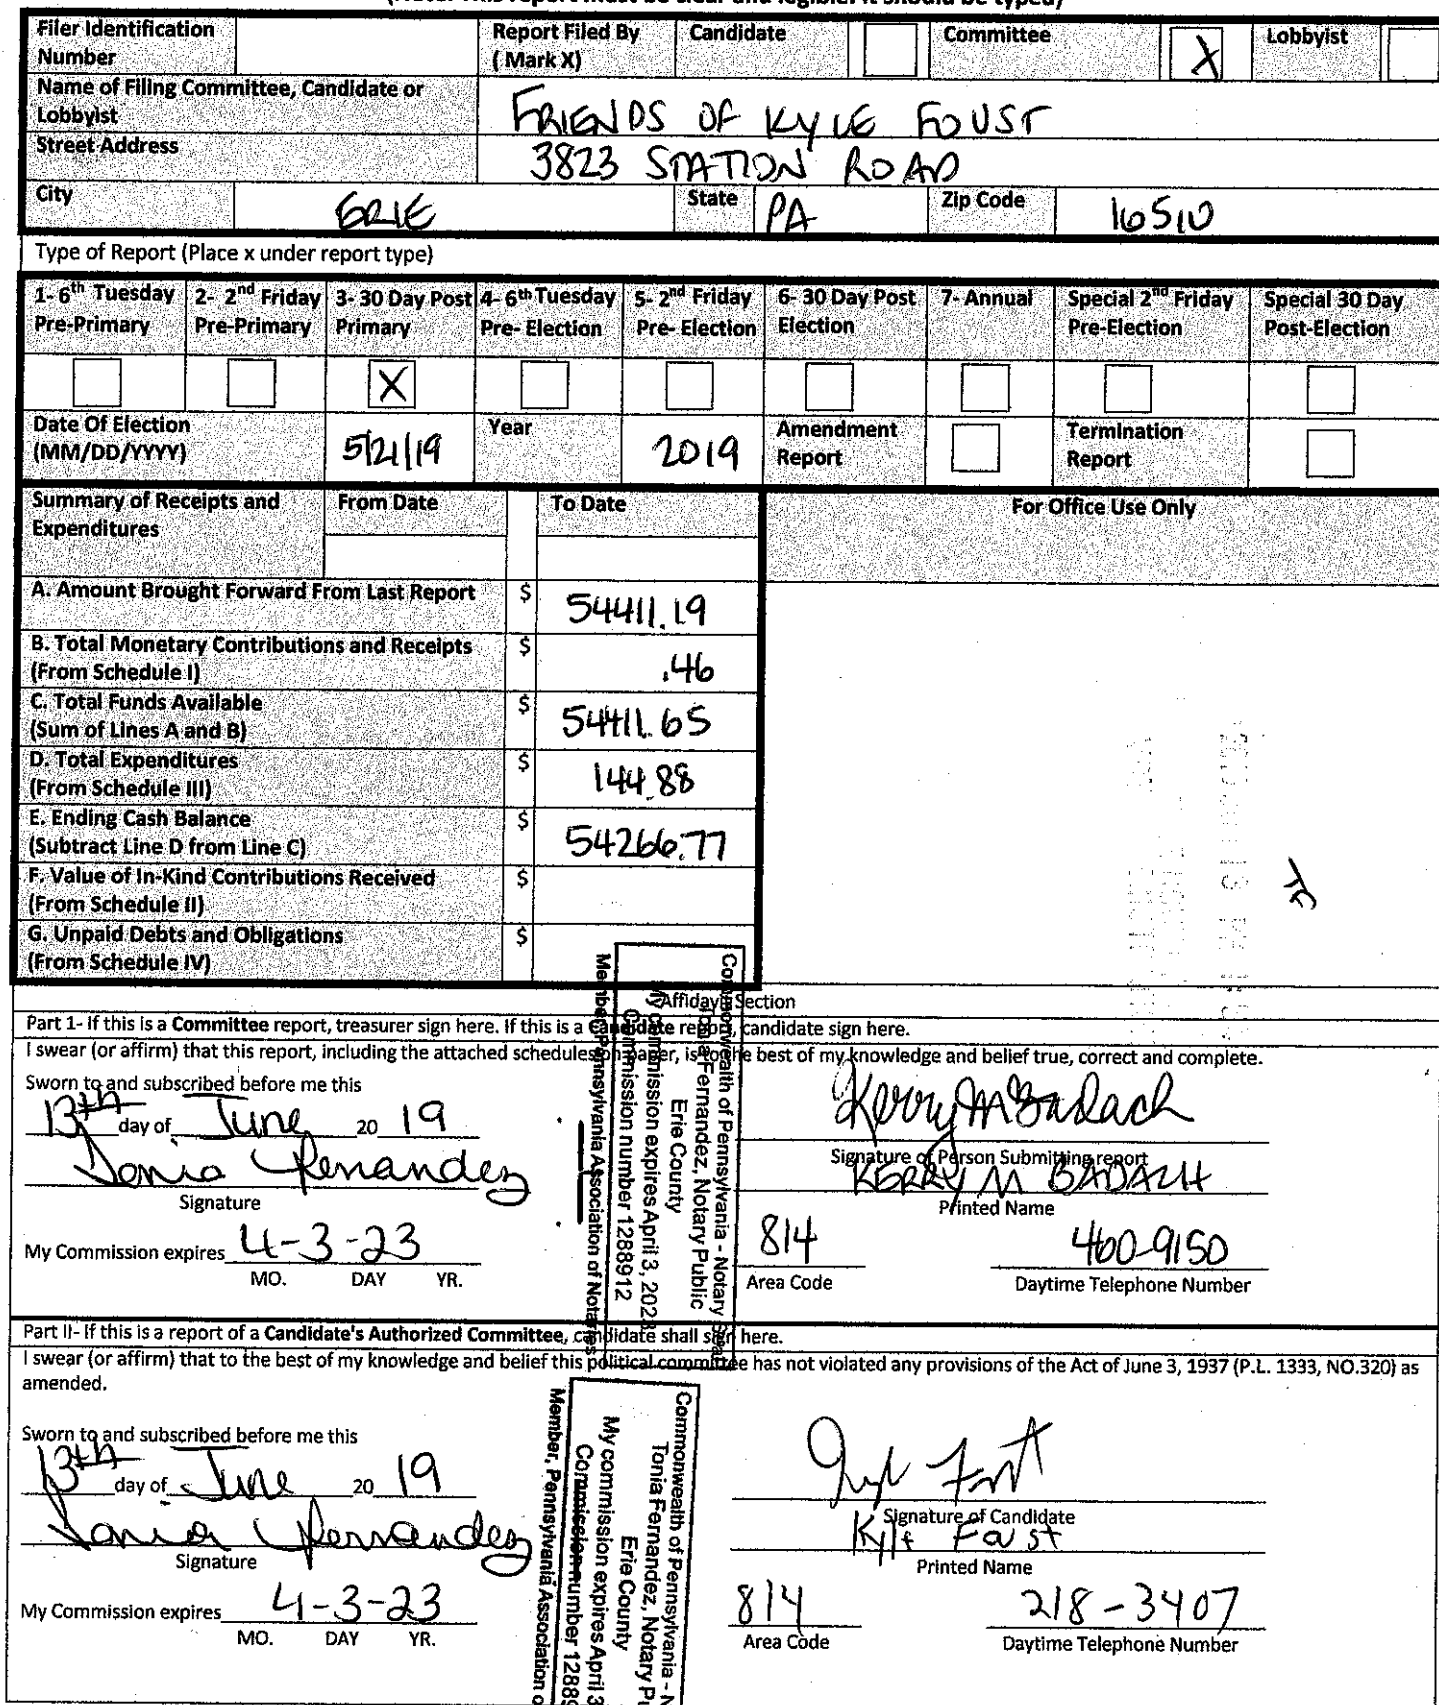 Filer Identification Number
Report Filed By ( Mark X)
Candidate
Committee
X
Lobbyist
Name of Filing Committee, Candidate or Lobbyist
FRIENDS OF KYLE FOUST
Street Address
3823 STATION ROAD
City
ERIE
State
PA
Zip Code
16510
Type of Report (Place x under report type)
1- 6th Tuesday Pre-Primary
2- 2nd Friday Pre-Primary
3- 30 Day Post Primary
4- 6th Tuesday Pre- Election
5- 2nd Friday Pre- Election
6- 30 Day Post Election
7- Annual
Special 2nd Friday Pre-Election
Special 30 Day Post-Election
X
Date Of Election (MM/DD/YYYY)
5/21/19
Year
2019
Amendment Report
Termination Report
Summary of Receipts and Expenditures
From Date
To Date
For Office Use Only
A. Amount Brought Forward From Last Report
$ 54411.19
B. Total Monetary Contributions and Receipts (From Schedule I)
$ .46
C. Total Funds Available (Sum of Lines A and B)
$ 54411.65
D. Total Expenditures (From Schedule III)
$ 144.88
E. Ending Cash Balance (Subtract Line D from Line C)
$ 54266.77
F. Value of In-Kind Contributions Received (From Schedule II)
$
G. Unpaid Debts and Obligations (From Schedule IV)
$
Affidavit Section
Part 1- If this is a Committee report, treasurer sign here. If this is a Candidate report, candidate sign here.
I swear (or affirm) that this report, including the attached schedules on paper, is to the best of my knowledge and belief true, correct and complete.
Sworn to and subscribed before me this
13th day of June 20 19
Tonia Fernandez
Signature
My Commission expires 4-3-23
MO. DAY YR.
Commonwealth of Pennsylvania - Notary Seal
Tonia Fernandez, Notary Public
Erie County
My commission expires April 3, 2023
Commission number 1288912
Member, Pennsylvania Association of Notaries
Kerry M Badach
Signature of Person Submitting report
KERRY M BADACH
Printed Name
814
Area Code
460-9150
Daytime Telephone Number
Part II- If this is a report of a Candidate's Authorized Committee, candidate shall sign here.
I swear (or affirm) that to the best of my knowledge and belief this political committee has not violated any provisions of the Act of June 3, 1937 (P.L. 1333, NO.320) as
amended.
Sworn to and subscribed before me this
13th day of June 20 19
Tonia Fernandez
Signature
My Commission expires 4-3-23
MO. DAY YR.
Commonwealth of Pennsylvania - N
Tonia Fernandez, Notary Pu
Erie County
My commission expires April 3
Commission number 1288
Member, Pennsylvania Association o
Kyle Foust
Signature of Candidate
Kyle Foust
Printed Name
814
Area Code
218-3407
Daytime Telephone Number